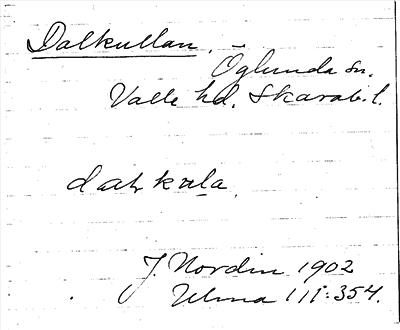 Dalkullan.
Öglunda sn.
Valle hd. Skarab. l.
J. Nordin 1902
Ulma 111:354.